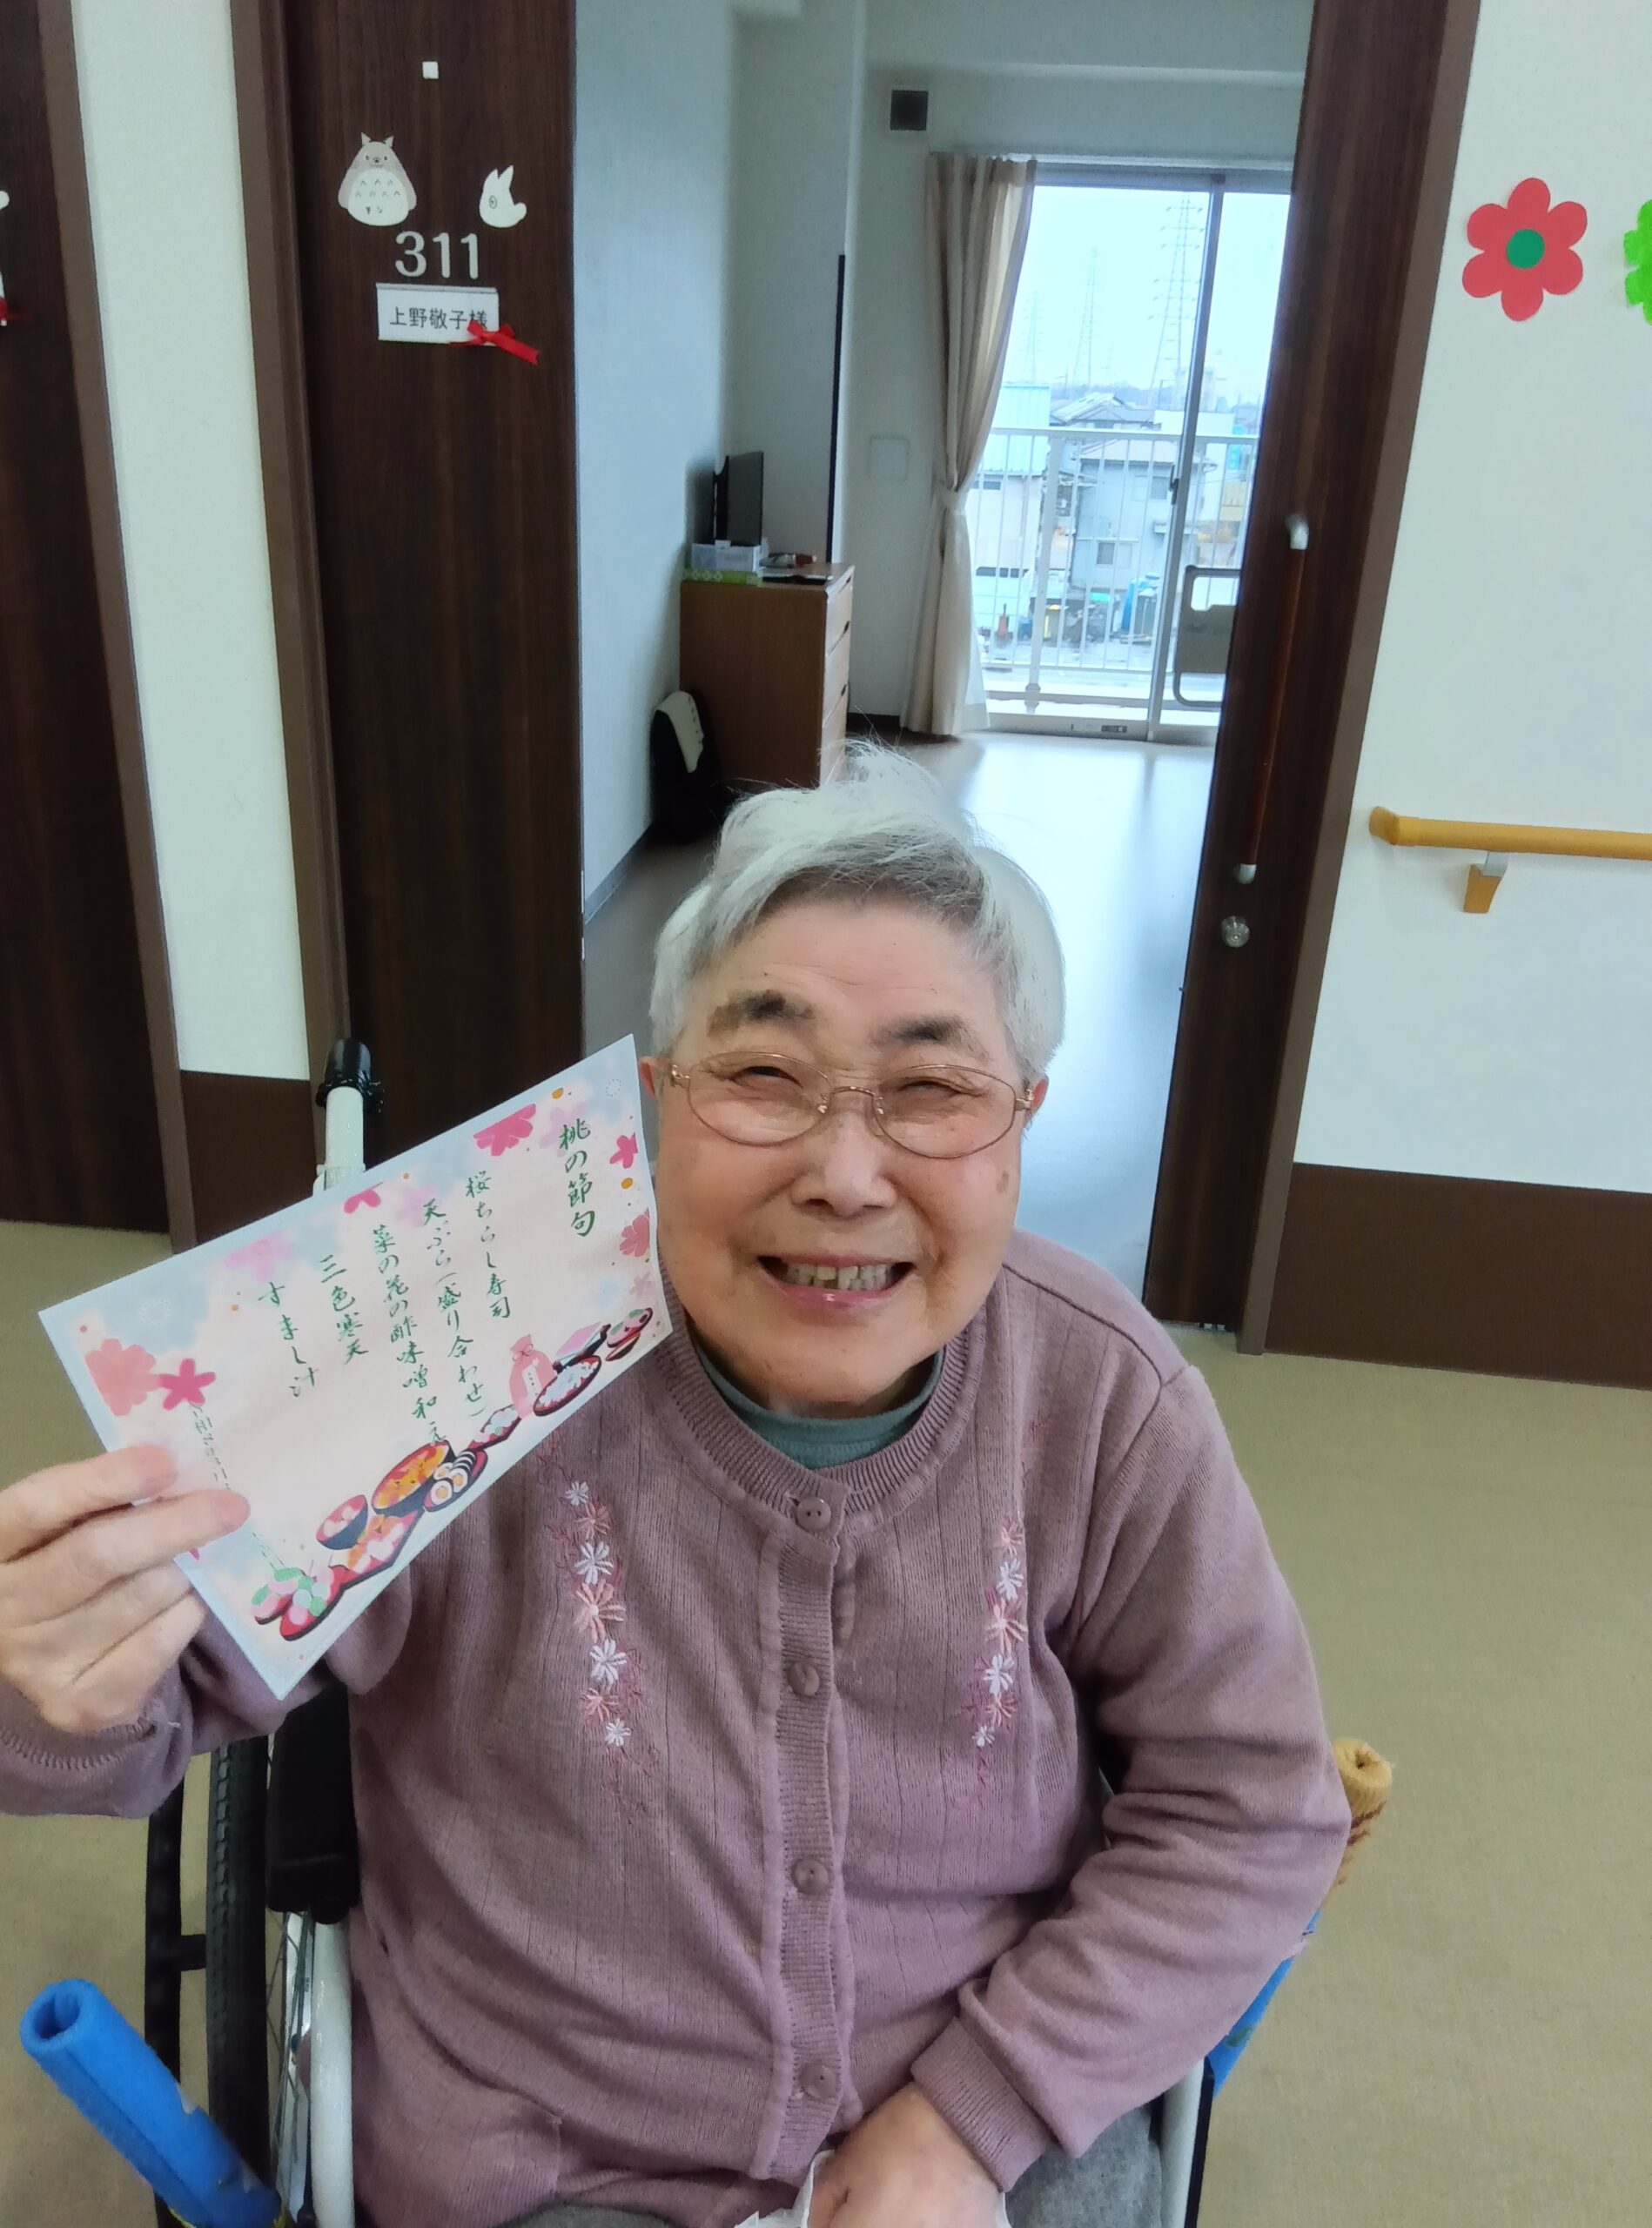 311
上野敬子様
桃の節句
桜ちらし寿司
天ぷら(盛り合わせ)
菜の花の酢味噌和え
三色寒天
すまし汁